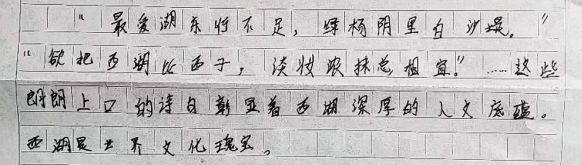 “最爱湖东行不足，绿杨阴里白沙堤。”
“欲把西湖比西子，淡妆浓抹总相宜。”……这些
朗朗上口的诗句彰显着西湖深厚的人文底蕴。
西湖是世界文化瑰宝。